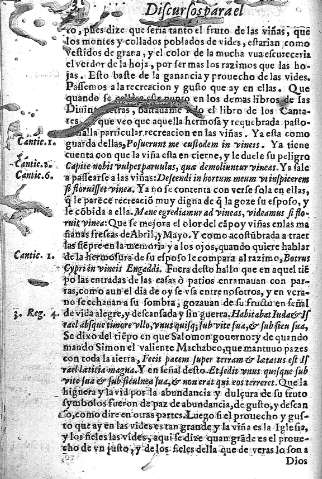 Discursos para el
ro, pues dize que seria tanto el fruto de las viñas, que
los montes y collados poblados de vides, estarian, como
vestidos de grana, y el color de la mucha vua escureceria
el verdor de la hoja, por ser mas los razimos que las ho-
jas. Esto baste de la ganancia y prouecho de las vides.
Passemos a la recreacion y gusto que ay en ellas. Que
quando se este punto en los demas libros de las
Diuinas letras, bastauame solo el libro de los Canta-
res, que veo que aquella hermosa y requebrada pasto-
halla particular recreacion en las viñas. Ya esta como
Cantic. 1. guarda dellas, Posuerunt me custodem in vineis. Ya tiene
cuenta con que la viña esta en cierne, y le duele su peligro
Cantic. 2. Capite nobis vulpes paruulas, quæ demoliuntur vineas. Ya sale
Cantic. 6. a passearse a las viñas: Descendi in hortum meum vt inspicerem
si floruisset vinea. Ya no se contenta con verse sola en ellas,
q̃ le parece recreació muy digna de q̃ la goze su esposo, y
le cõbida a ella. Mane egrediamur ad vineas, videamus si flo-
ruit vinea: Que se mejora el olor del cãpo y viñas en las ma
ñanas frescas de Abril, y Mayo. Y como acostũbrada a traer
las siẽpre en la memoria y a los ojos, quando quiere hablar
Cantic. 1. de la hermosura de su esposo le compara al razimo, Botrus
Cypri in vineis Engaddi. Fuera desto hallo que en aquel tiẽ
po las entradas de las casas o patios enramauan con par-
ras, como aun el dia de oy se vsa entre nosotros, y en vera-
no se echauan a su sombra, gozauan de su fructo en señal
3. Reg. 4. de vida alegre, y descansada y sin guerra. Habitabat Iuda & Is
rael absque timore vllo, vnusquisq; sub vite sua, & sub ficu sua,
Se dixo del tiẽpo en que Salomon gouerno y de quando
mando Simon el valiente Machabeo, que mantuuo pazes
con toda la tierra, Fecit pacem super terram & lætatus est Is
rael lætitia magna. Y en señal desto Et sedit vnus quisque sub
vite sua & sub ficulnea sua, & non erat qui eos terreret. Que la
higuera y la vid por la abundancia y dulçura de su fruto
symbolos fueron de paz de abundancia, de gusto, y descan
so, como dire en otras partes. Luego si el prouecho y gus-
to que ay en las vides es tan grande y la viña es la Iglesia,
y los fieles las vides, aqui se dize quan grãde es el proue-
cho de vn justo, y de los fieles della que de veras lo son a
Dios